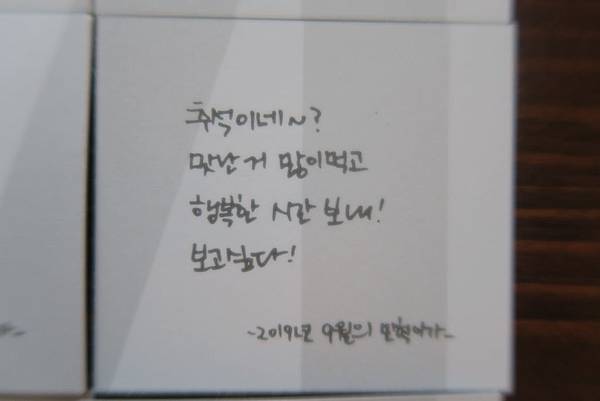 추석이네~?
맛난 거 많이먹고
행복한 시간 보내!
보고싶다!
-2019년 9월의 모혁아가-